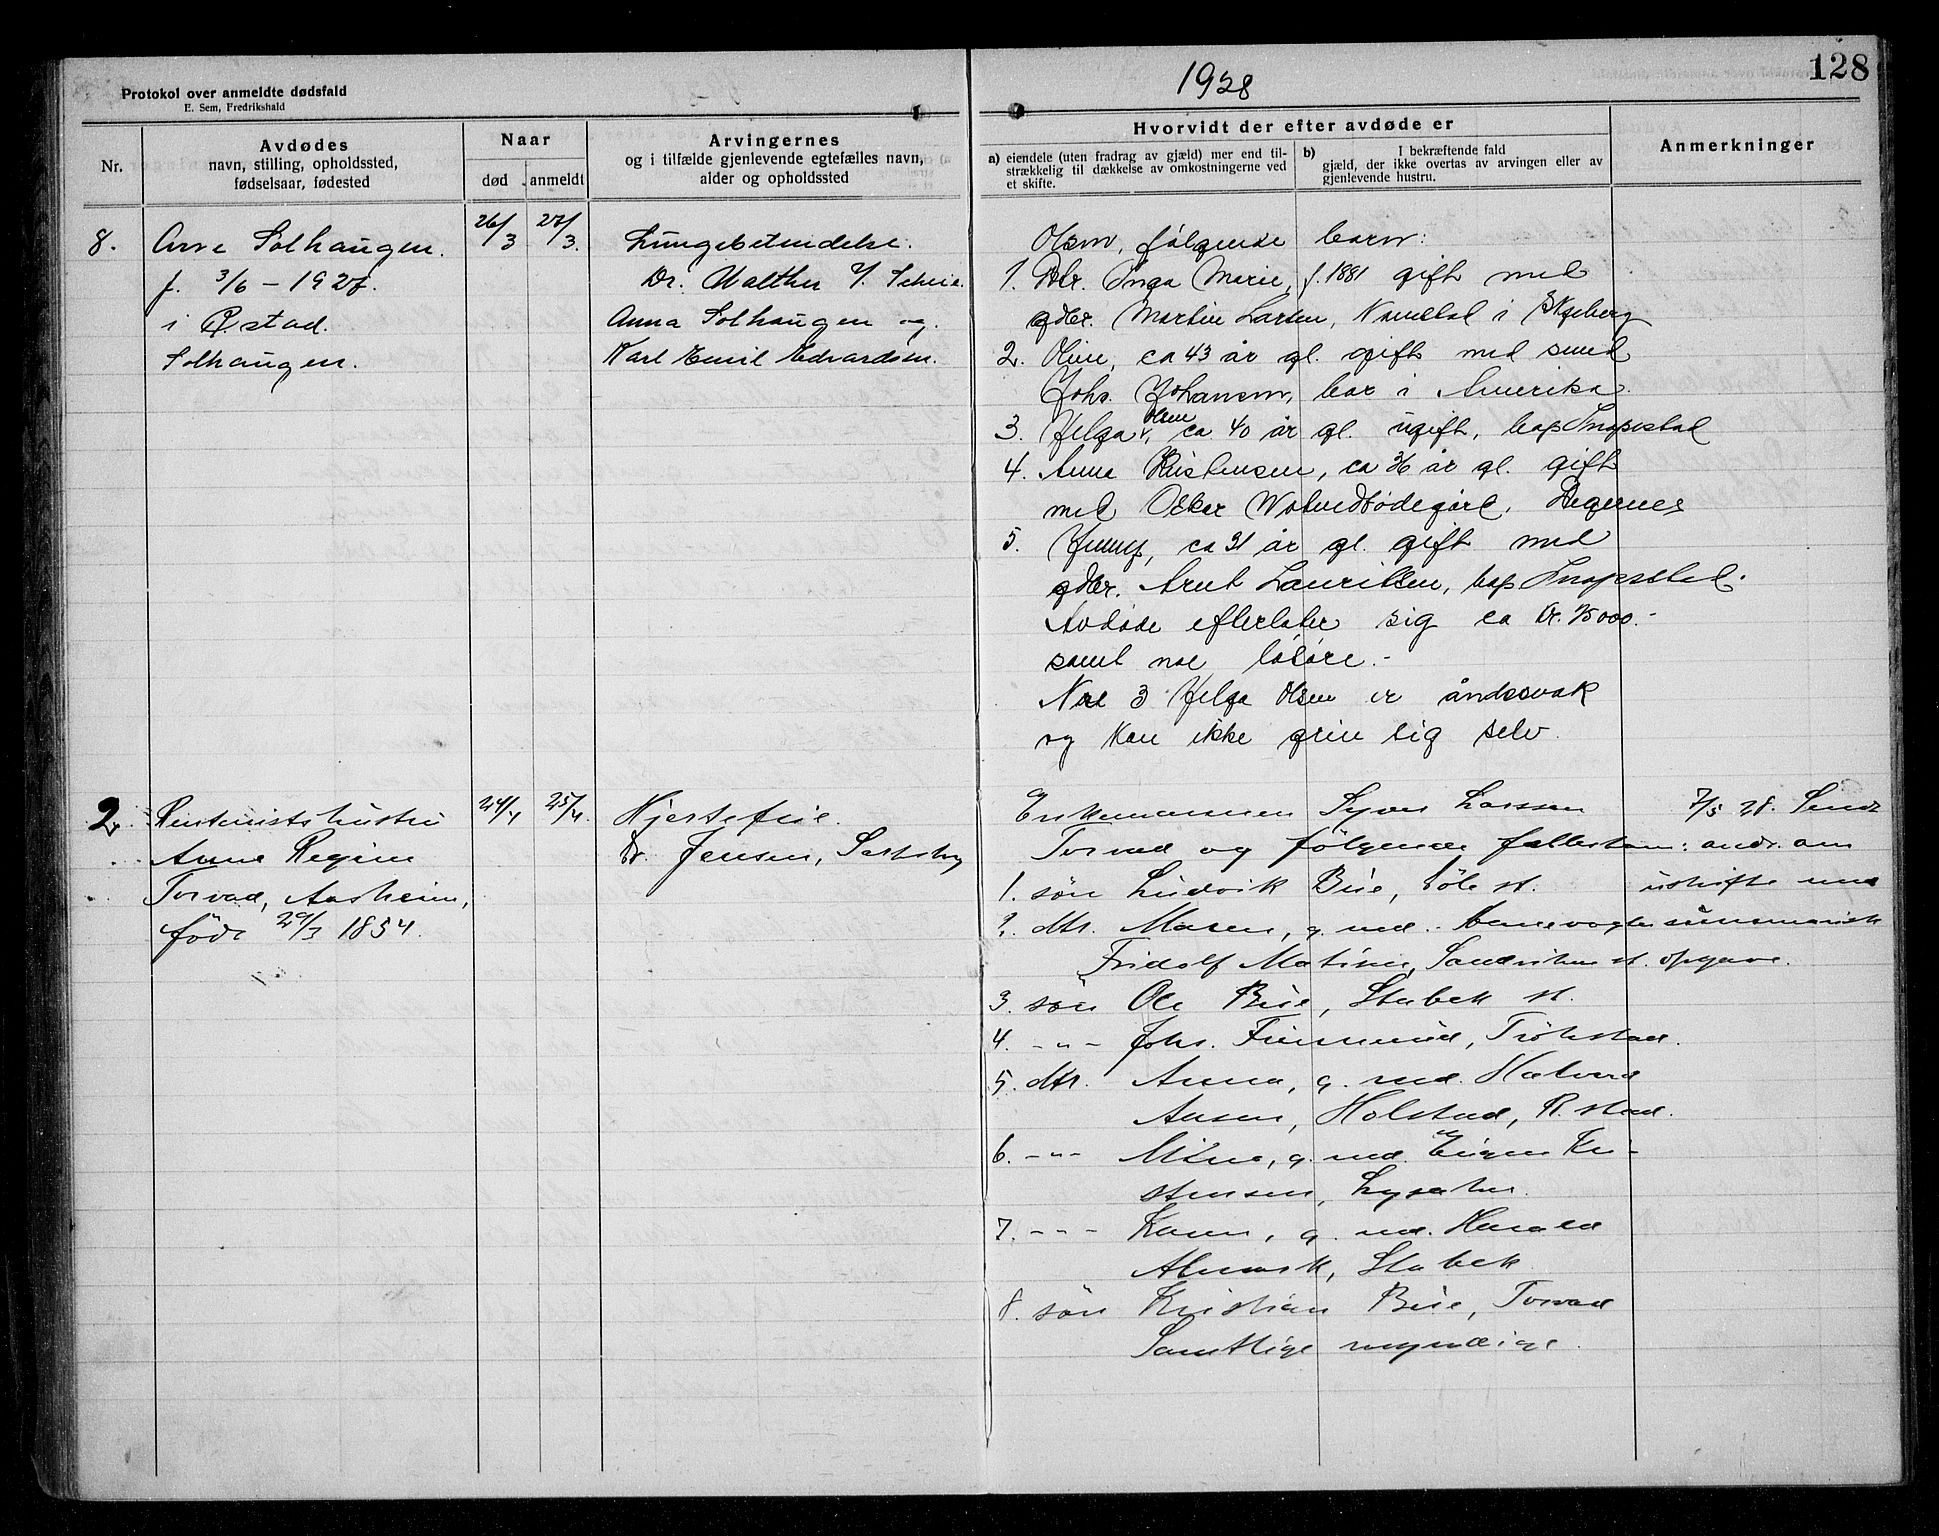 128
1928
Protokol over anmeldte dødsfald
E. Sem, Fredrikshald
Nr.
Avdødes
navn, stilling, opholdssted,
fødselsaar, fødested
Naar
død
anmeldt
Arvingernes
og i tilfælde gjenlevende egtefælles navn,
alder og opholdssted
Hvorvidt der efter avdøde er
a) eiendele (uten fradrag av gjæld) mer end til-
strækkelig til dækkelse av omkostningerne ved
et skifte.
b) I bekræftende fald
gjæld, der ikke overtas av arvingen eller av
gjenlevende hustru.
Anmerkninger
8. Arve Solhaugen. 26/3 27/3. Lungebetendelse.
f. 3/6 – 1927. Dr. Walther
i Østad. Anna Solhaugen og
Solhaugen. Karl Emil Edvardsen.
Olsen, følgende barn:
1. Dtr. Inga Marie, f. 1881 gift med
gdbr. Martin Larsen, i Skjeberg
2. Oline, ca 43 år gl. gift med smed
Johs. Johansen, bor i Amerika.
3. Helga Olsen, ca 40 år gl. ugift, bop
4. Anna Kristensen, ca 36 år gl. gift
med Oskar Degernes
5. Jenny, ca 31 år gl. gift med
gdbr. Arnt Lauritsen, bop
Avdøde efterlater sig ca kr. 15000.-
samt noe løsøre.-
No 3 Helga Olsen er åndssvak
og kan ikke greie sig selv.
2. hustru 24/4 25/4. Hjertefeil.
Anne Regine Dr. Jensen, Sarpsborg
Torvad, Aasheim,
født 29/3 1854.
Enkemannen Syver Larssen
Torvad og følgende fellesbarn:
1. søn Ludvik Bøe, st.
2. dtr. Maren, g. med banevogter
Fridolf Sandviken st.
3. søn Ole Bøe, Stabek st.
4. -"- Johs. Trøkstad.
5. dtr. Anna, g. med. Halvard
Holstad, R.stad.
6. -"- g. med. Eugen Kri-
stensen, Lysaker.
7. -"- Karen, g. med. Harald
Stabek.
8. søn Kristian Bøe, Torvad
Samtlige myndige.
7/5 28. Sendt
andr. om
utskifte med
summarisk
opgave.